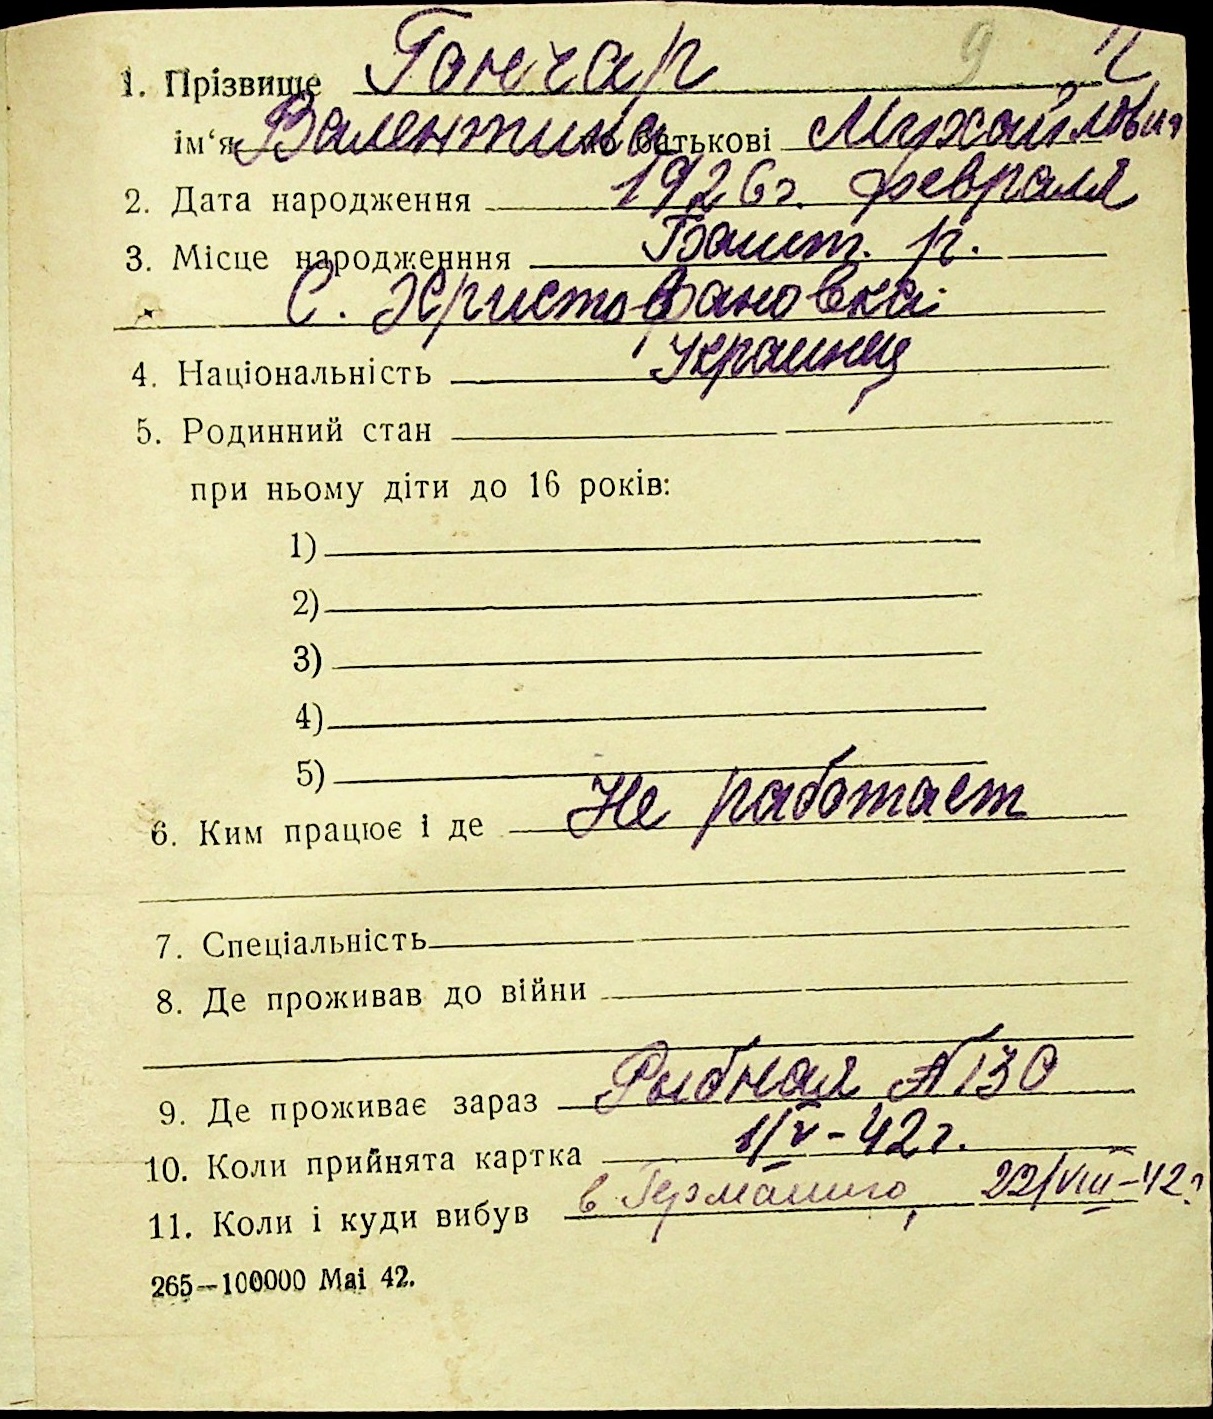 9 11
1. Прізвище Гончар
ім‘я Валентина по батькові Михайловна
2. Дата народження 1926г. февраля
3. Місце народженння Башт. р.
С. Христофановка
4. Національність Украинец
5. Родинний стан
при ньому діти до 16 років:
1)
2)
3)
4)
5)
6. Ким працює і де Не работает
7. Спеціальність
8. Де проживав до війни
9. Де проживає зараз Рыбная №130
10. Коли прийнята картка 1/V-42г.
11. Коли і куди вибув в Германию, 22/VIII-42г
265—100000 Mai 42.